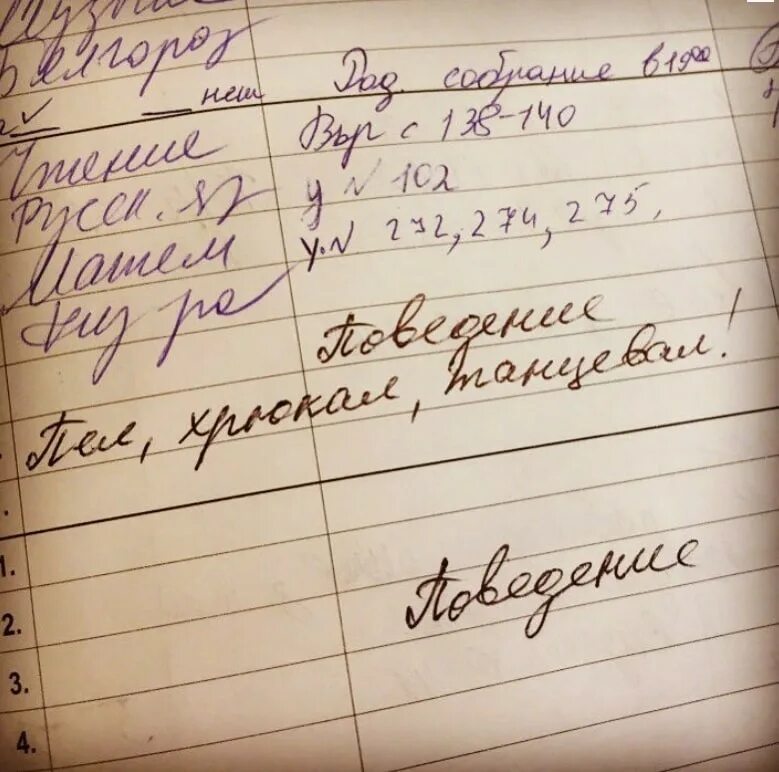 Белгород
неш Род. собрание в 19⁰⁰
Чтение Выр с 138-140
Русск. яз у N 102
Матем у. N 272, 274, 275,
физ ра
Поведение
Пел, хрюкал, танцевал!
1.
Поведение
2.
3.
4.